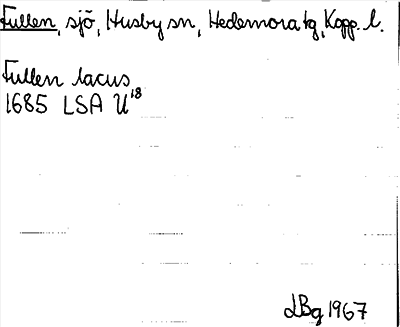 Fullen, sjö, Husby sn, Hedemora tg, Kopp. l.
Fullen lacus
1685 LSA U18
LBg 1967